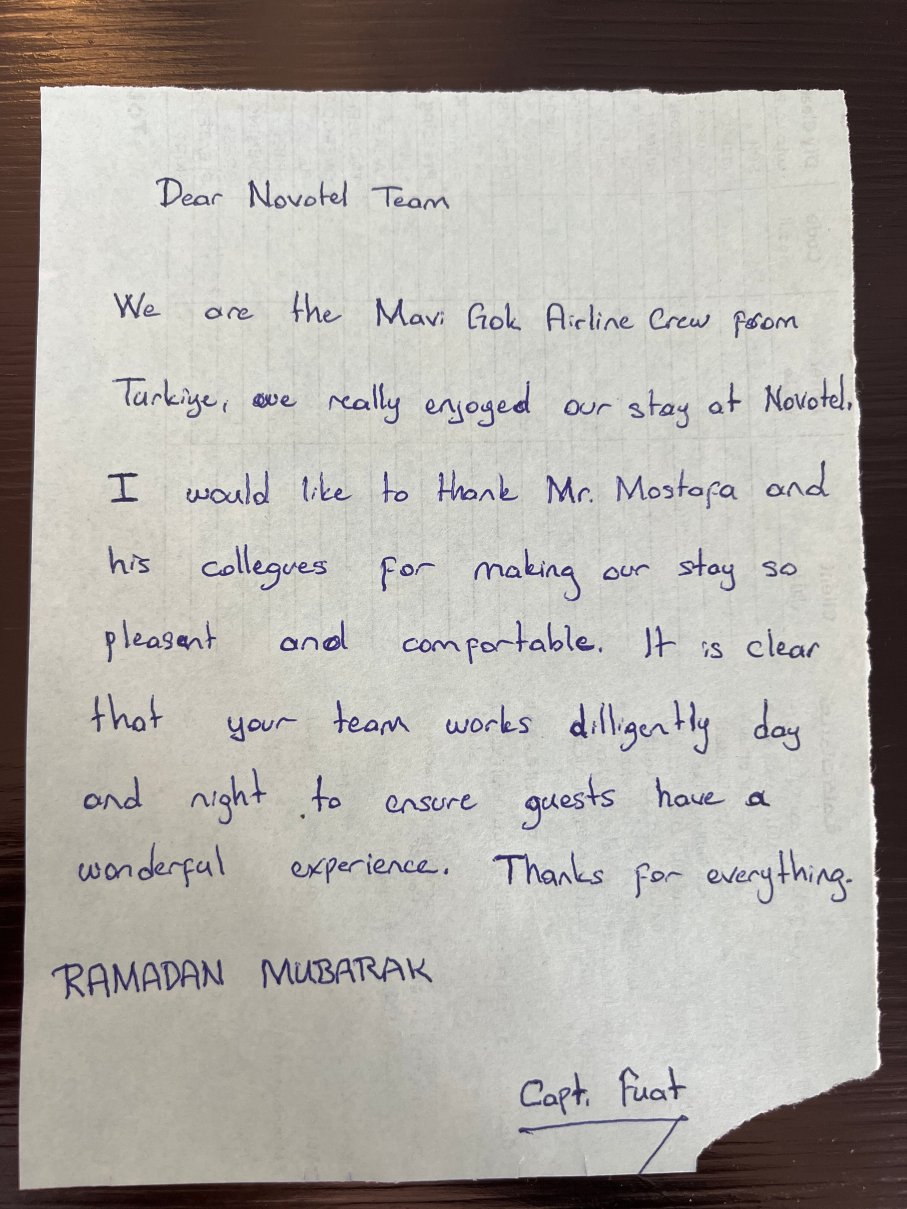 Dear Novotel Team
We are the Mavi Gok Airline Crew from
Turkiye, we really enjoyed our stay at Novotel.
I would like to thank Mr. Mostafa and
his collegues for making our stay so
pleasant and comfortable. It is clear
that your team works dilligently day
and night to ensure guests have a
wonderful experience. Thanks for everything.
RAMADAN MUBARAK
Capt. Fuat